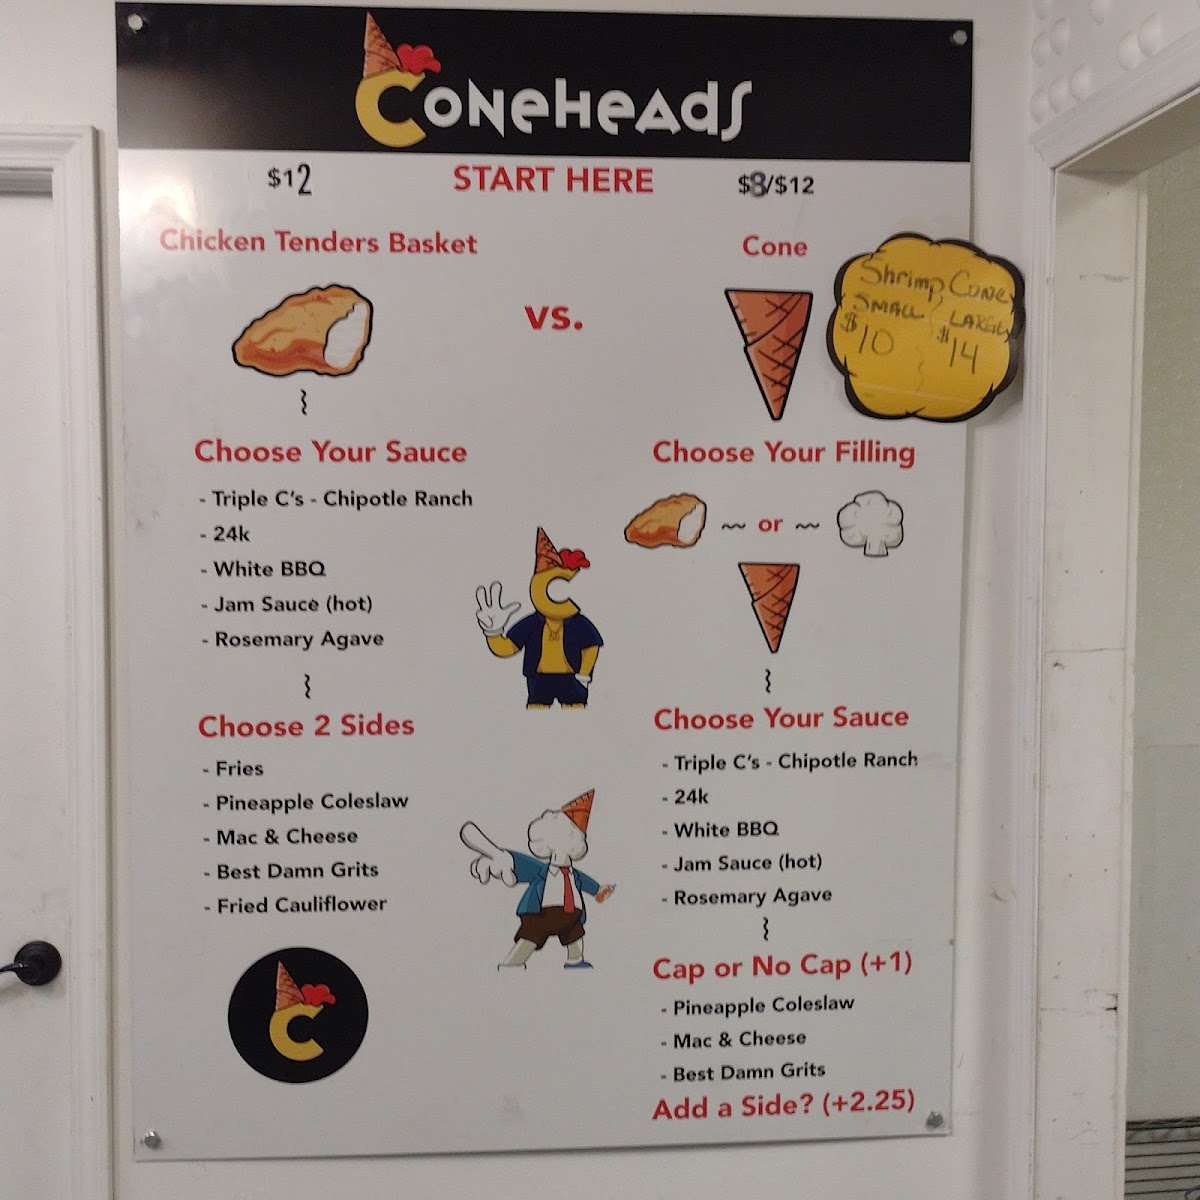 Coneheads
$12
START HERE
$8/$12
Chicken Tenders Basket
vs.
Cone
Shrimp Cone
SMALL LARGE
$10 $14
Choose Your Sauce
- Triple C's - Chipotle Ranch
- 24k
- White BBQ
- Jam Sauce (hot)
- Rosemary Agave
Choose 2 Sides
- Fries
- Pineapple Coleslaw
- Mac & Cheese
- Best Damn Grits
- Fried Cauliflower
C
Choose Your Filling
or
Choose Your Sauce
- Triple C's - Chipotle Ranch
- 24k
- White BBQ
- Jam Sauce (hot)
- Rosemary Agave
Cap or No Cap (+1)
- Pineapple Coleslaw
- Mac & Cheese
- Best Damn Grits
Add a Side? (+2.25)